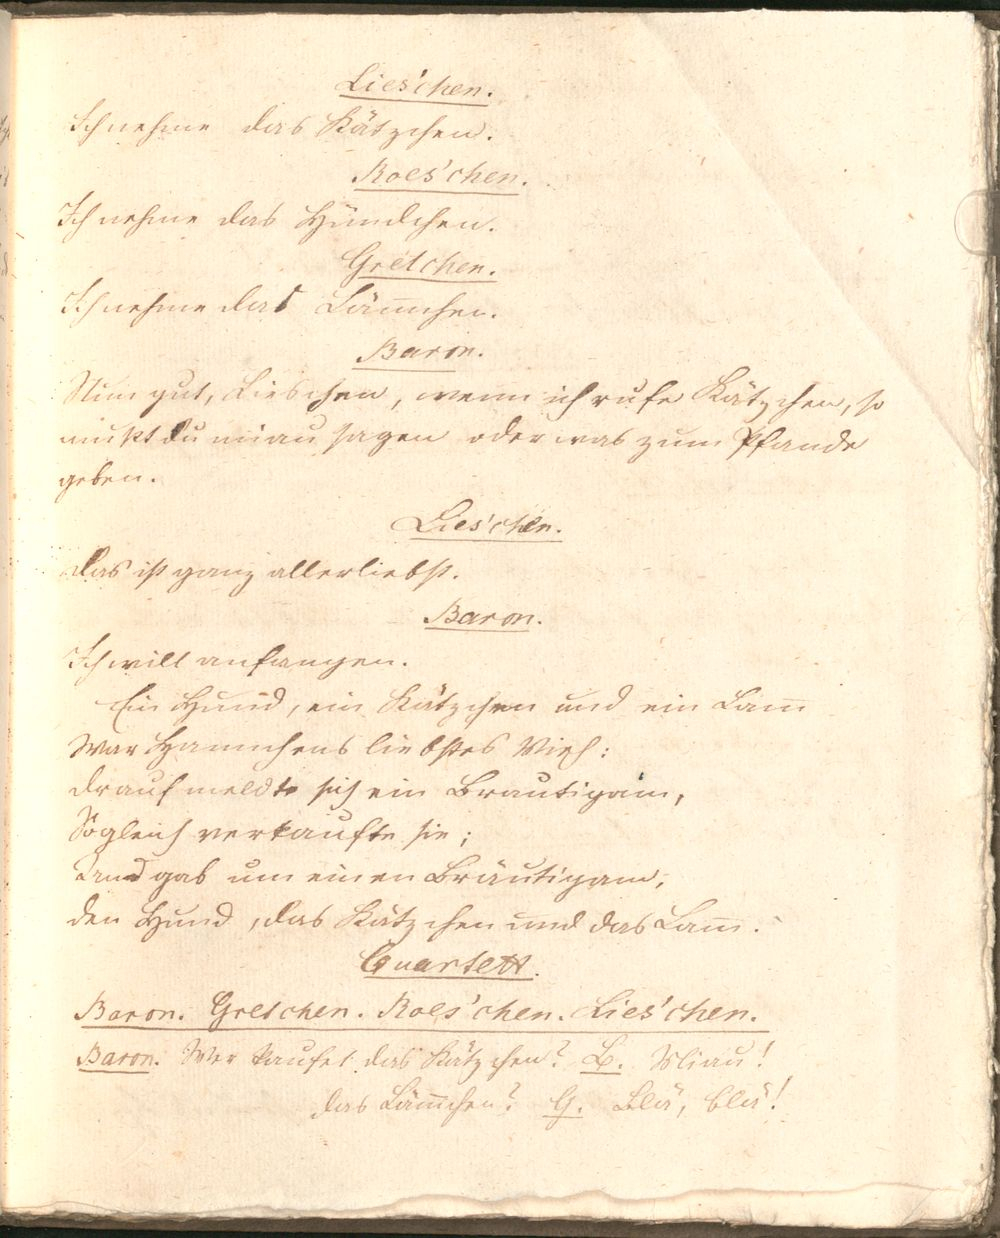 Lies'chen.
Ich nehme das Kätzchen.
Roes'chen.
Ich nehme das Hündchen.
Gretchen.
Ich nehme das Läm̅chen.
Baron.
Nun gut, Lieschen, wenn ich rufe Kätzchen, so
mußt du miau sagen oder was zum Pfande
geben.
Lies'chen.
Das ist ganz allerliebst.
Baron.
Ich will anfangen.
Ein Hund, ein Kätzchen und ein Lam̅
War Hannchens liebstes Vieh:
drauf meldte sich ein Brautigam,
Sogleich verkaufte sie;
Und gab um einen Bräutigam,
den Hund, das Kätzchen und das Lam̅.
Quartett.
Baron. Gretchen. Roes'chen. Lies'chen.
Baron. Wer kaufet das Kätzchen? L. Miau!
das Läm̅chen? G. Blä, blä!